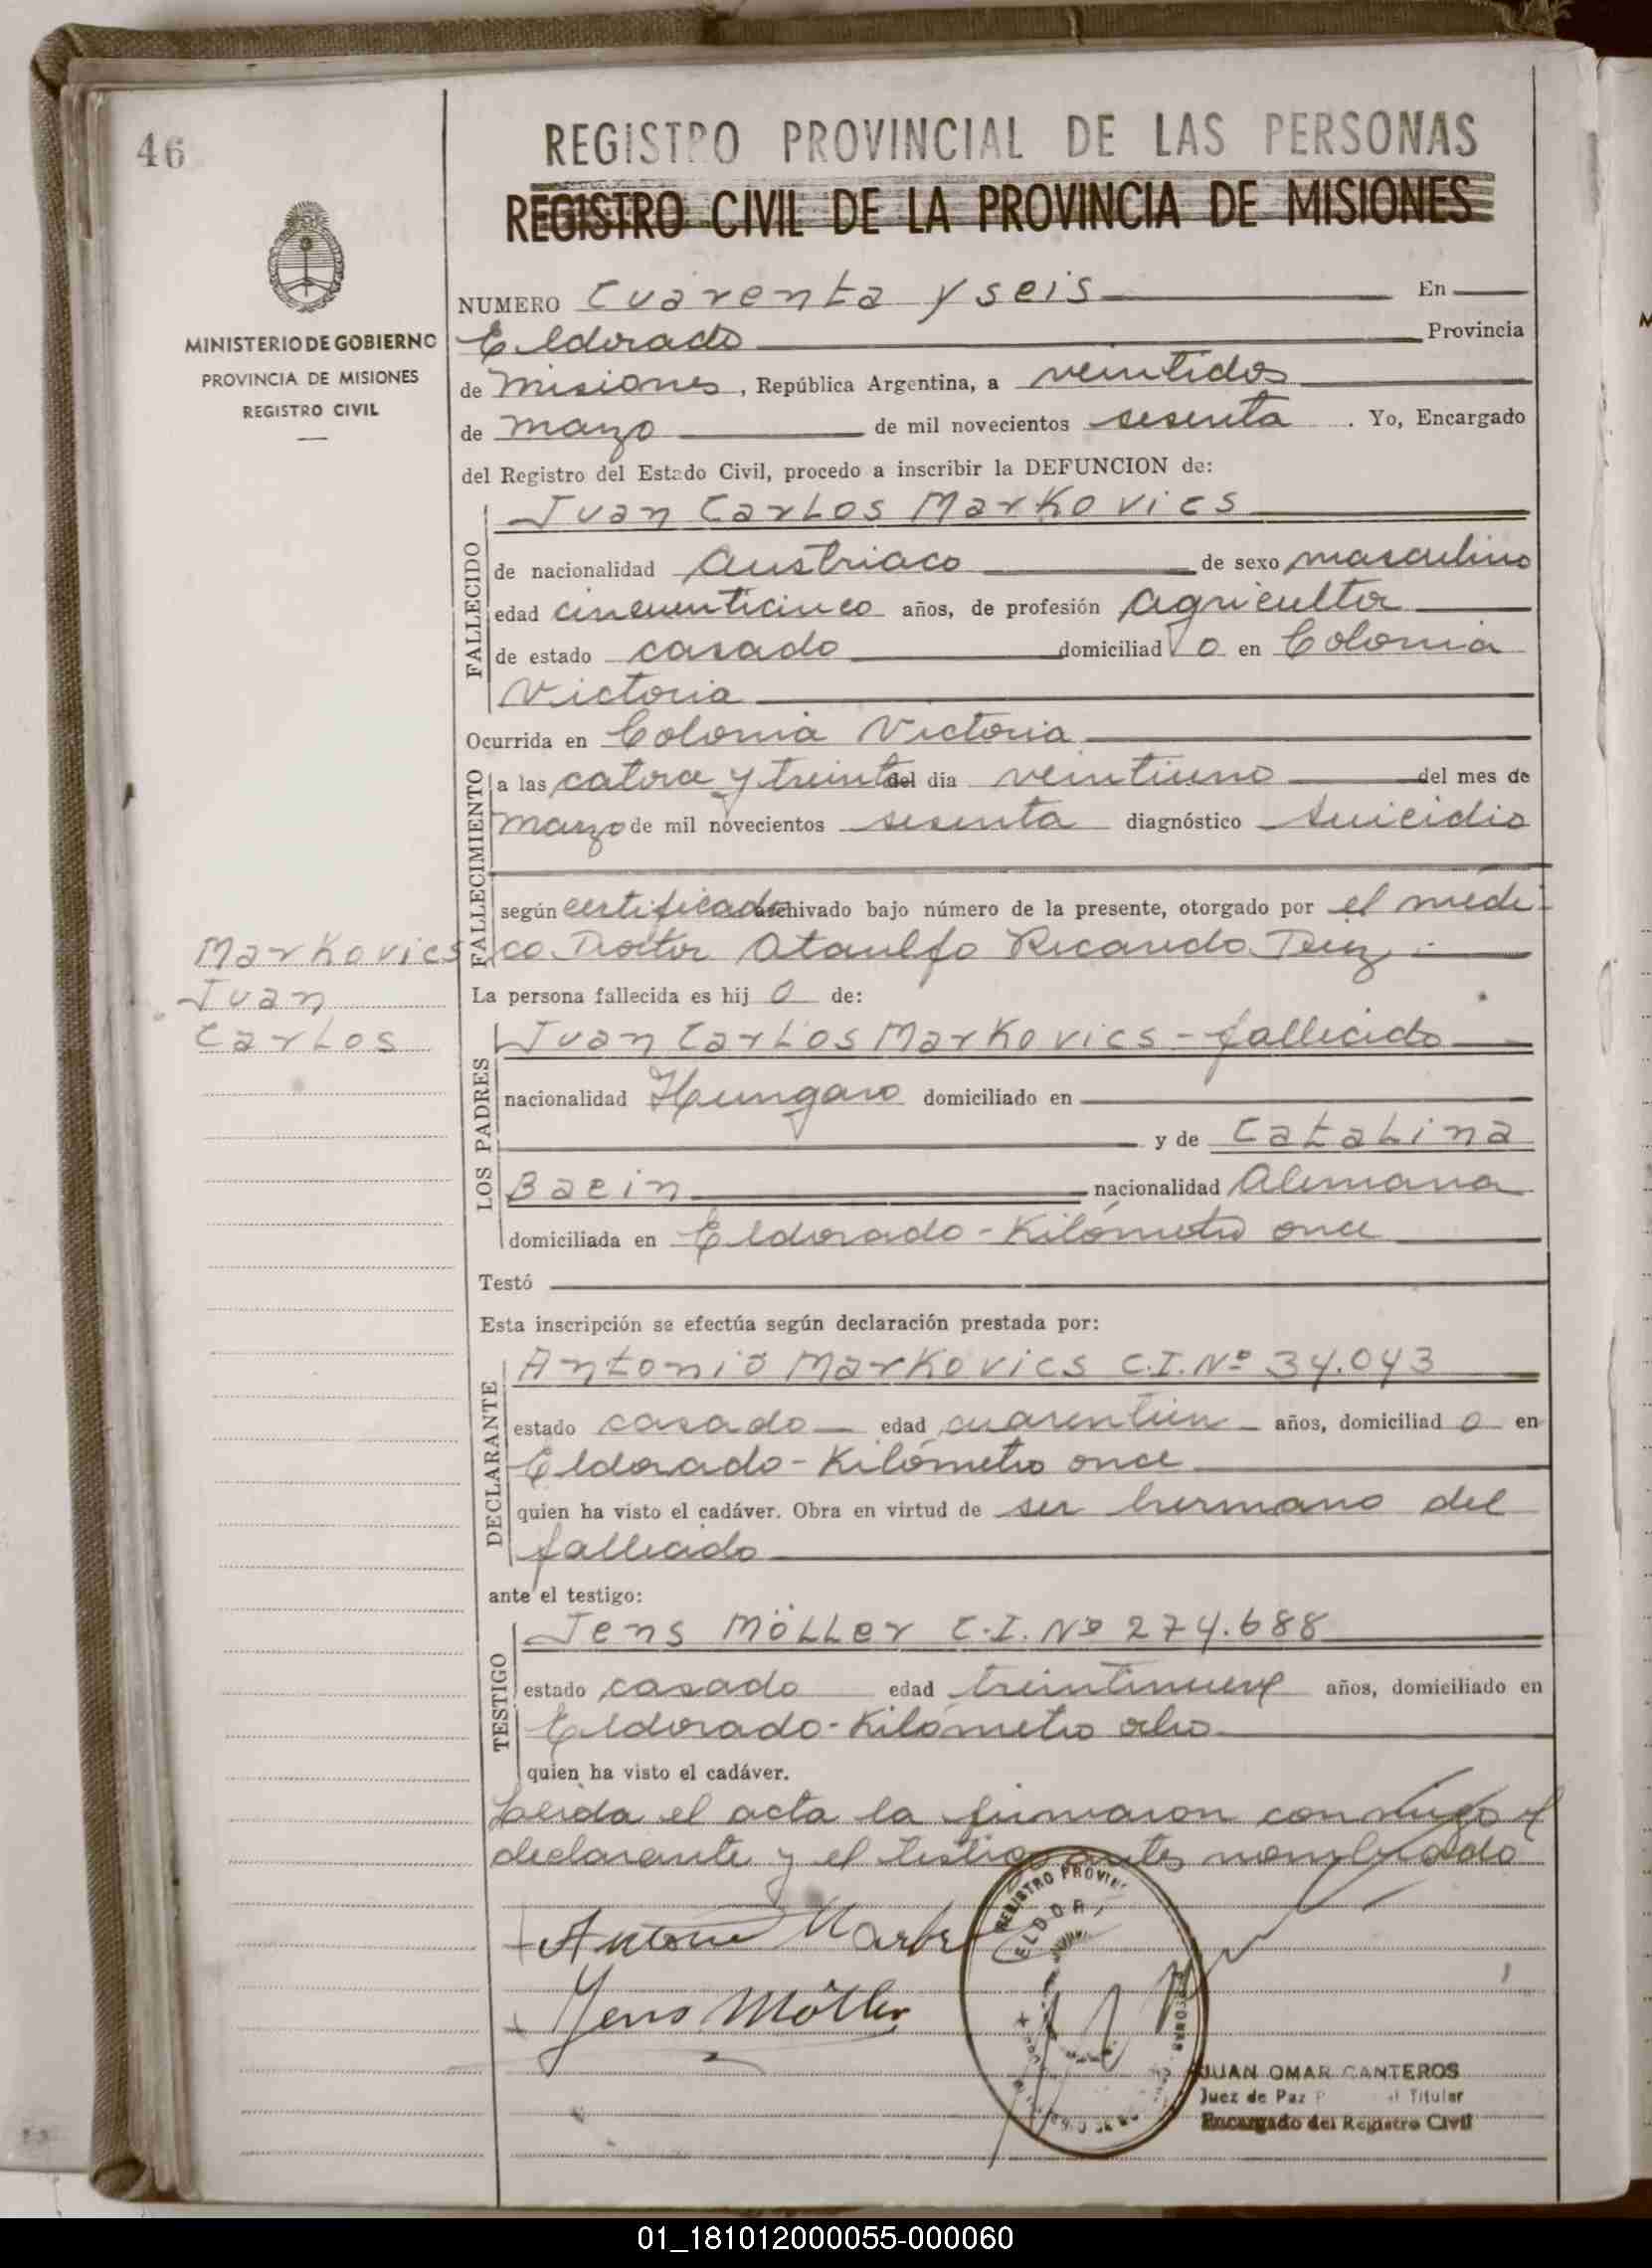 46
REGISTRO PROVINCIAL DE LAS PERSONAS
REGISTRO CIVIL DE LA PROVINCIA DE MISIONES
MINISTERIO DE GOBIERNO
PROVINCIA DE MISIONES
REGISTRO CIVIL
NUMERO Cuarenta y seis En
Eldorado Provincia
de Misiones, República Argentina, a veintidos
de marzo de mil novecientos sesenta. Yo, Encargado
del Registro del Estado Civil, procedo a inscribir la DEFUNCION de:
FALLECIDO
Juan Carlos Markovics
de nacionalidad Austriaco de sexo masculino
edad cincuenticinco años, de profesión Agricultor
de estado casado domiciliad o en Colonia
Victoria
Ocurrida en Colonia Victoria
FALLECIMIENTO
a las catorce y treinta del día veintiuno del mes de
marzo de mil novecientos sesenta diagnóstico Suicidio
según certificado archivado bajo número de la presente, otorgado por el médi-
co Doctor Ataulfo Ricardo
Markovics
Juan
Carlos
La persona fallecida es hij o de:
LOS PADRES
Juan Carlos Markovics - fallecido
nacionalidad Hungaro domiciliado en
y de Catalina
Baein nacionalidad Alemana
domiciliada en Eldorado - Kilómetro once
Testó
Esta inscripción se efectúa según declaración prestada por:
DECLARANTE
Antonio Markovics C.I. Nº 34.043
estado casado edad años, domiciliad o en
Eldorado - Kilómetro once
quien ha visto el cadáver. Obra en virtud de ser hermano del
fallecido
ante el testigo:
TESTIGO
Jens Möller C.I. Nº 274.688
estado casado edad treintinueve años, domiciliado en
Eldorado - Kilómetro ocho
quien ha visto el cadáver.
Leida el acta la firmaron conmigo el
declarante y el testigo antes nombrado
Antonio
Jens Möller
REGISTRO PROVIN
ELDORA
JUAN OMAR CANTEROS
Juez de Paz Titular
Encargado del Registro Civil
01_181012000055-000060